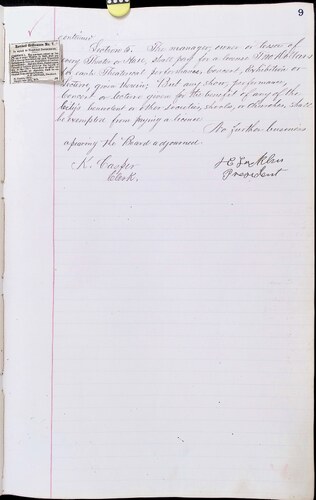 9
continued
Section 6. The manager, owner or lessee of
any Theater or Hall, shall pay for a license Two Dollars
for each Theatrical performance, Concert, Exhibition or
Lecture, given therein; But any show, performance,
Concert or lecture given for the benefit of any of the
City's benevolent or other Societies, Schools, or Churches, shall
be exempted from paying a license.
No further business
appearing the Board adjourned.
K. Casper
Clerk.
President